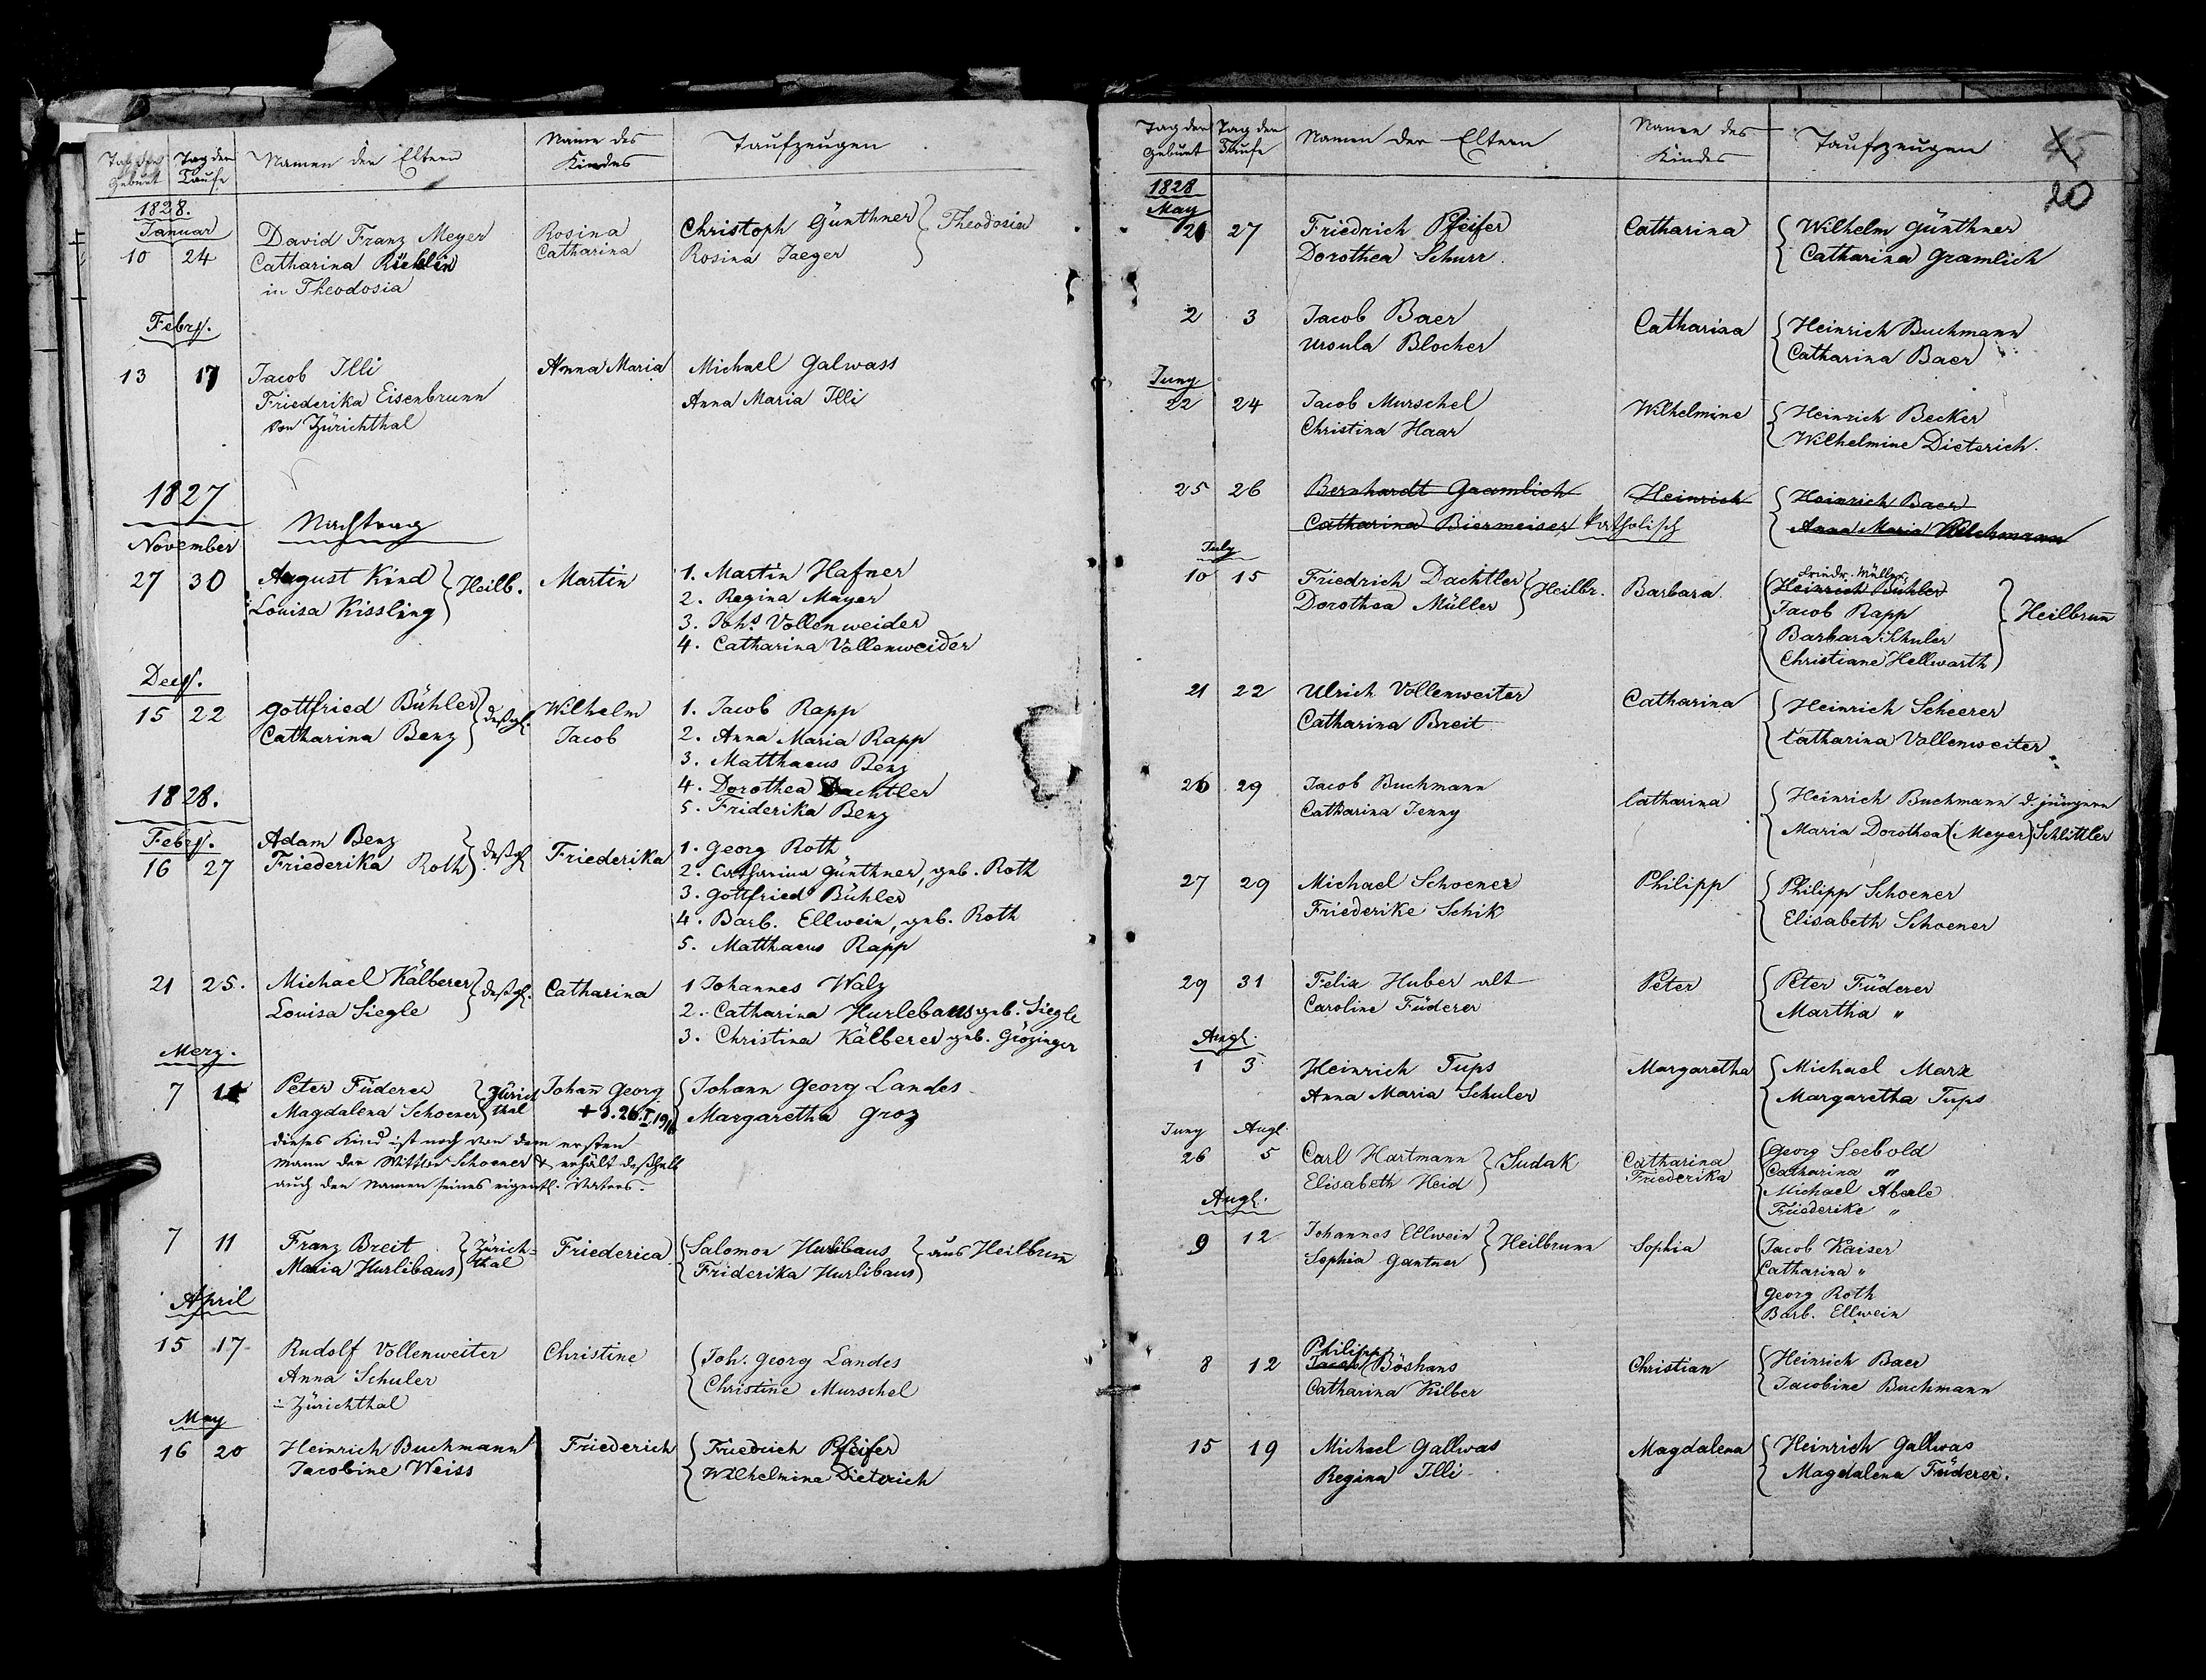 Tag der Geburt | Tag der Taufe | Namen der Eltern | Name des Kindes | Taufzeugen
1828.
Januar
10 | 24 | David Franz Meyer | Rosina | Christoph Günthner } Theodosia
Catharina Rieblin | Catharina | Rosina Jaeger
in Theodosia
Febrj.
13 | 17 | Jacob Illi | Anna Maria | Michael Galwass
Friederika Eisenbrunn | Anna Maria Illi
von Zürichthal
1827
Nachtrag
November
27 | 30 | August Kind } Heilb. | Martin | 1. Martin Hafner
Louisa Kissling | 2. Regina Mayer
3. Johs Vollenweider
4. Catharina Vollenweider
Decj.
15 | 22 | Gottfried Bühler } deßgl. | Wilhelm | 1. Jacob Rapp
Catharina Benz | Jacob | 2. Anna Maria Rapp
3. Matthaeus Benz
4. Dorothea Dachtler
5. Friderika Benz
1828.
Febrj.
16 | 27 | Adam Benz } deßgl | Friederika | 1. Georg Roth
Friederika Roth | 2. Catharina Günthner, geb. Roth
3. Gottfried Bühler
4. Barb. Ellwein, geb. Roth
5. Matthaeus Rapp
21 | 25. | Michael Kälberer } deßgl. | Catharina | 1 Johannes Walz
Louisa Siegle | 2. Catharina Hurlebaus geb. Siegle
3. Christina Kälberer geb. Grözinger
Merz.
7 | 11 | Peter Füderer } Zürich | Johañ Georg | { Johann Georg Landes
Magdalena Schoener thal | + d. 26.I.19 | Margaretha Groz
dieses Kind ist noch von dem ersten
mann der Wittwe Schoener & erhält deßhalb
auch den Namen seines eigentl. Vaters.
7 | 11 | Franz Breit } Zürich= | Friederica | { Salomon Hurlibaus } aus Heilbruñ
Maria Hurlibaus thal | Friderika Hurlibaus
April
15 | 17 | Rudolf Vollenweiter | Christine | { Joh. Georg Landes
Anna Schuler | Christine Murschel
÷ Zürichthal
May
16 | 20 | Heinrich Buchmann | Friederich | { Friedrich Pfeifer
Jacobine Weiss | Wilhelmine Dieterich
Tag der Geburt | Tag der Taufe | Namen der Eltern | Namen des Kindes | Taufzeugen
20
1828
May
26 | 27 | Friedrich Pfeifer | Catharina | { Wilhelm Günthner
Dorothea Schurr. | Catharina Gramlich
2 | 3 | Jacob Baer | Catharina | { Heinrich Buchmann
Ursula Blocher | Catharina Baer
Juny
22 | 24 | Jacob Murschel | Wilhelmine | { Heinrich Becker
Christina Haar | Wilhelmine Dieterich.
25 | 26 | Bernhardt Gramlich | Heinrich | { Heinrich Baer
Catharina Biermeiser katholisch | Anna Maria
July
10 | 15 | Friedrich Dachtler } Heilbr. | Barbara. | Friedr. Müller
Dorothea Müller | Heinrich Bühler
Jacob Rapp } Heilbruñ
Barbara Schuler
Christiane Hellwarth
21 | 22 | Ulrich Vollenweiter | Catharina | { Heinrich Scheerer
Catharina Breit | Catharina Vollenweiter
26 | 29 | Jacob Buchmann | Catharina | { Heinrich Buchmann d. jüngern
Catharina Jenny | Maria Dorothea (Meyer) Schlittler
27 | 29 | Michael Schoener | Philipp | { Philipp Schoener
Friederike Schik | Elisabeth Schoener
29 | 31 | Felix Huber alt | Peter | { Peter Füderer
Caroline Füderer | Martha "
Augl.
1 | 5 | Heinrich Tups | Margaretha | { Michael Marx
Anna Maria Schuler | Margaretha Tups
Juny | Augl.
26 | 5 | Carl Hartmann } Sudak | Catharina | { Georg Seebold
Elisabeth Heid | Friederika | Catharina "
Michael Aberle
Friederike "
Augl.
9 | 12 | Johannes Ellwein } Heilbrunn | Sophia | { Jacob Kaiser
Sophia Gantner | Catharina "
Georg Roth
Barb. Ellwein
Philipp
8 | 12 | Jacob Böshans | Christian | { Heinrich Baer
Catharina Kilber | Jacobine Buchmann
15 | 19 | Michael Gallwas | Magdalena | { Heinrich Gallwas
Regina Illi | Magdalena Füderer.